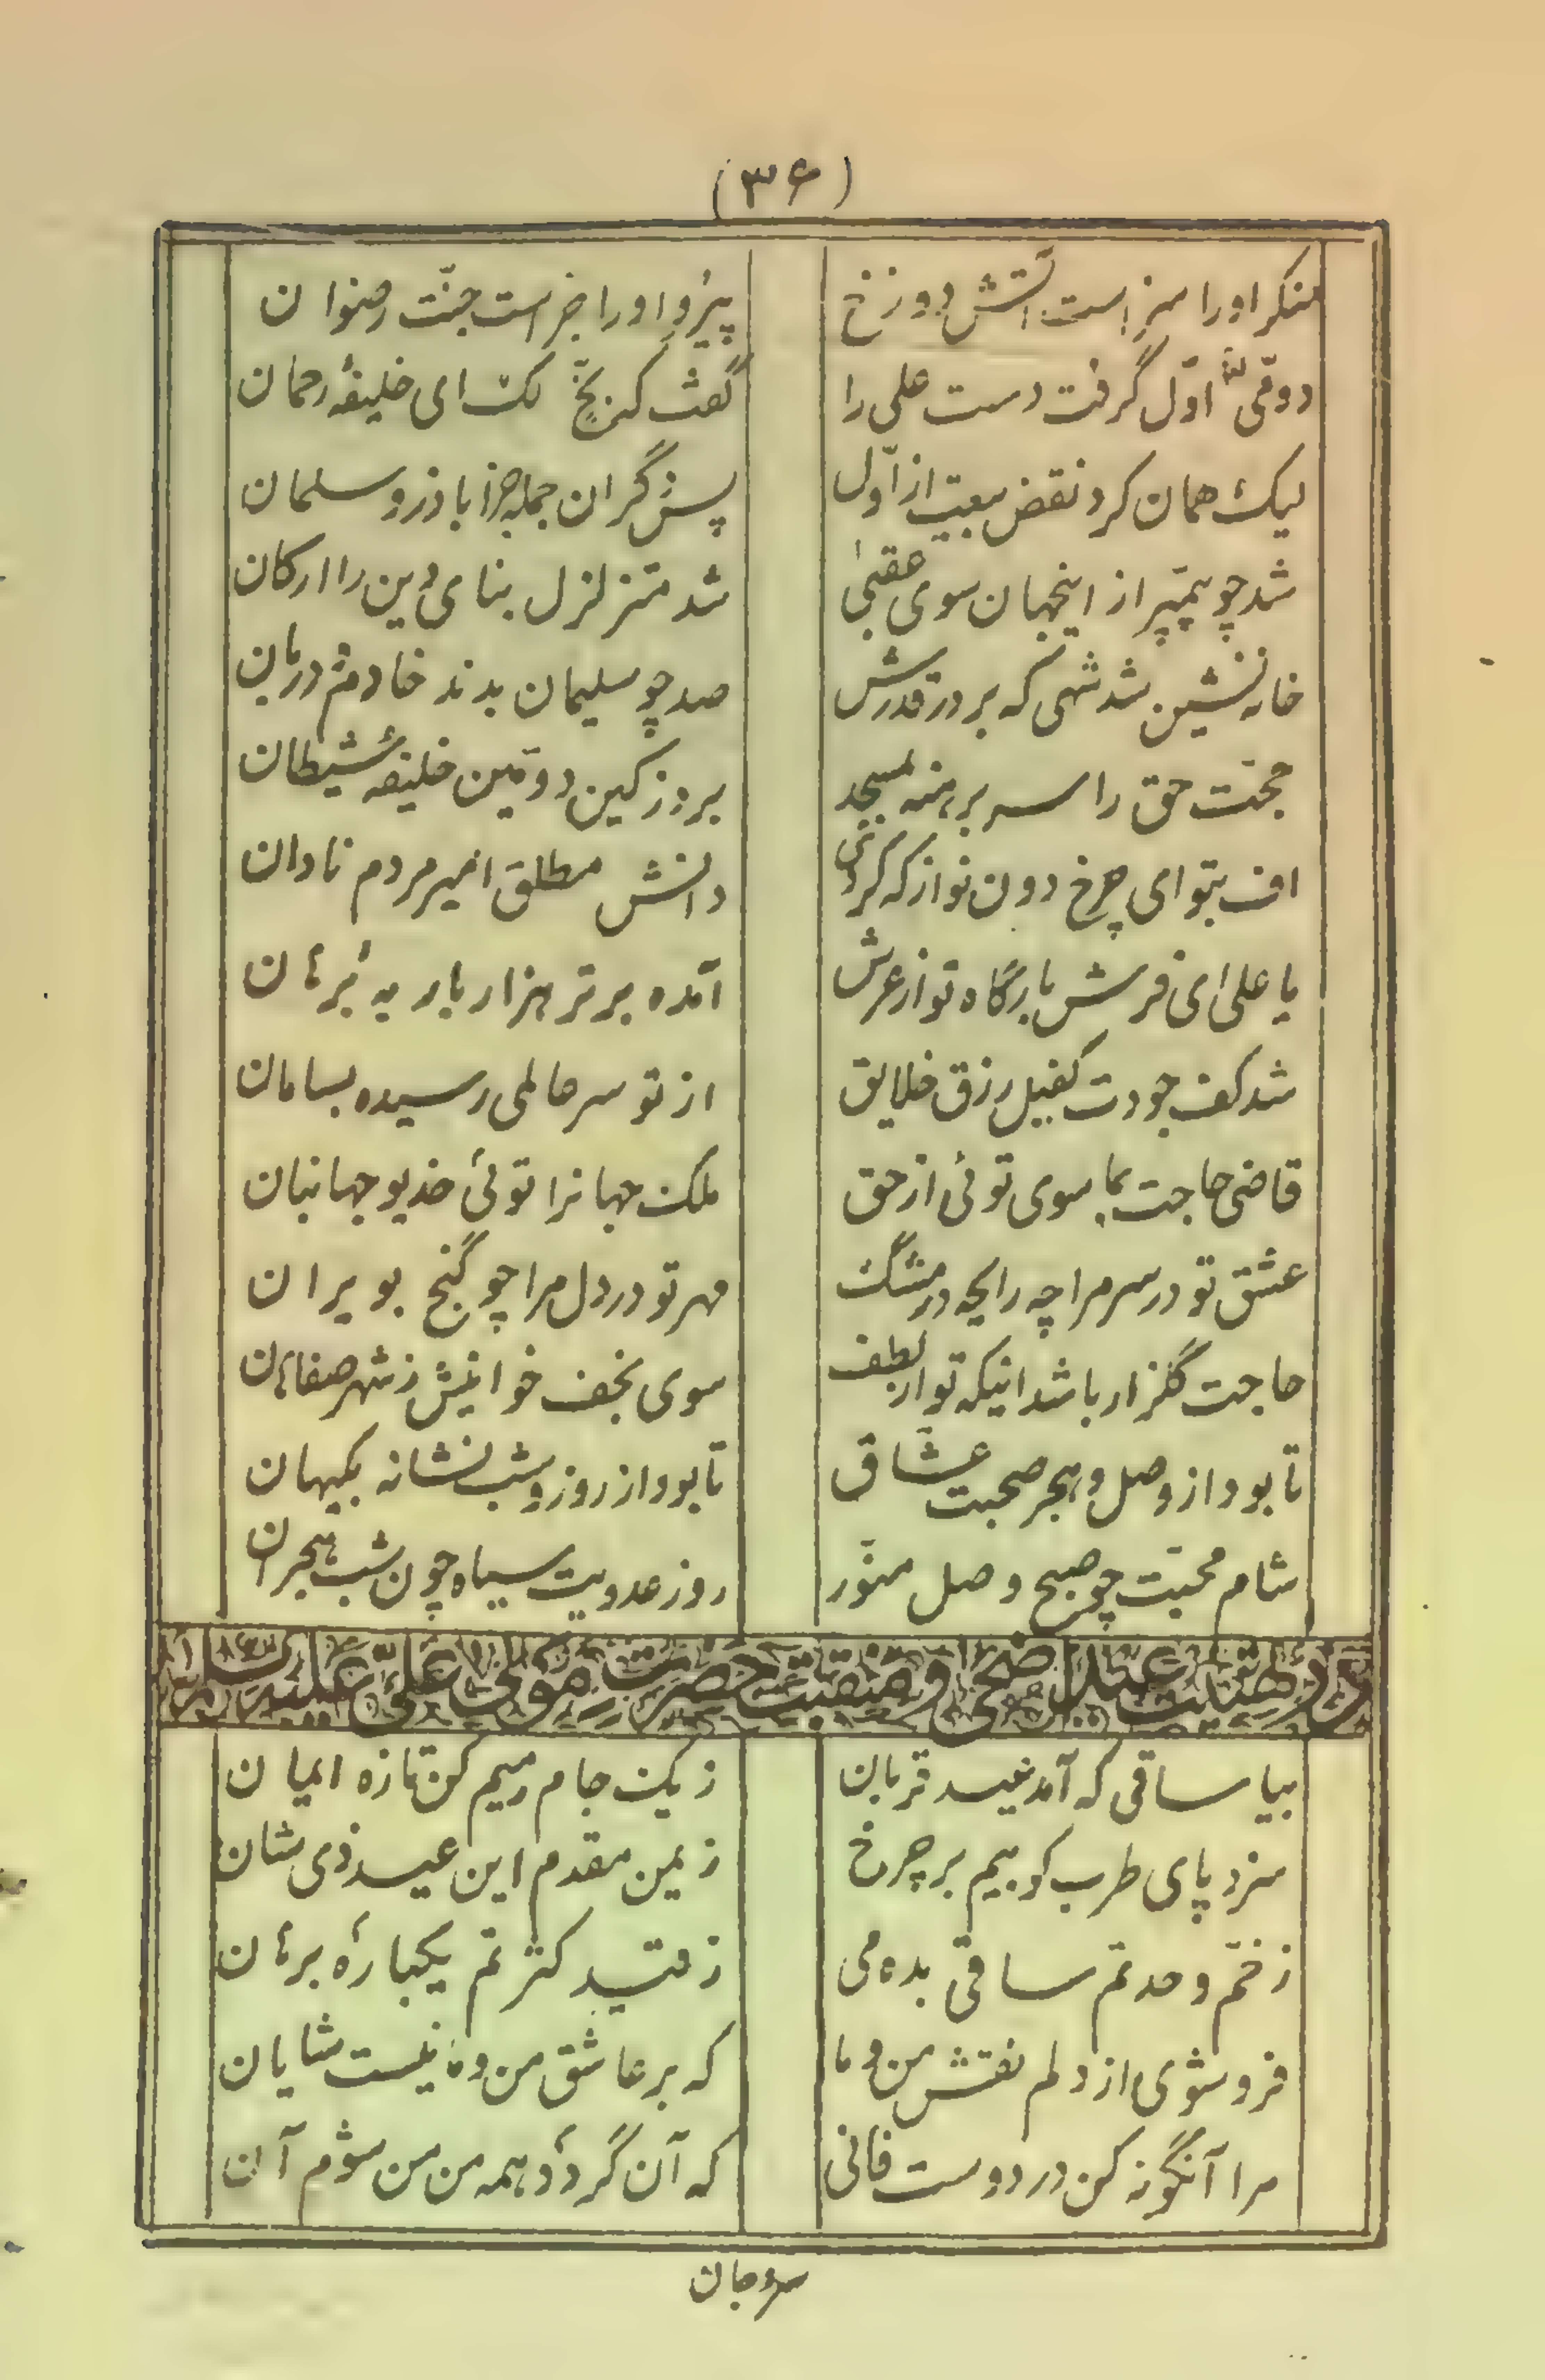 (۳۶)
منکر او را سزاست آتش دوزخ پیرو او را جزاست جنّت رضوان
دومّی اوّل گرفت دست علی را گفت کز بخٍّ لک ای خلیفهٔ رحمان
لیک همان کرد نقض بیعت از اوّل پس دگران جمله جز اباذر و سلمان
شد چو پیمبر از اینجهان سوی عقبیٰ شد متزلزل بنای دین را ارکان
خانه نشین شد شهی که بر در قدرش صد چو سلیمان بدند خادم و دربان
حجّت حق را سر برهنه بمسجد برد ز کین دومّین خلیفهٔ شیطان
اف بتو ای چرخ دون نواز که کردی دانش مطلق اسیر مردم نادان
یا علی ای فرش بارگاه تو از عرش آمده برتر هزار بار به برهان
شد کف جودت کفیل رزق خلایق از تو سر عالمی رسیده بسامان
قاضی حاجت بما سوی توئی از حق ملک جهانرا توئی خدیو جهانبان
عشق تو در سر مرا چه رایحه در مشک مهر تو در دل مرا چو گنج بویران
حاجت گلزار باشد اینکه تو از لطف سوی نجف خوانیش ز شهر صفاهان
تا بود از وصل و هجر صحبت عشّاق تا بود از روز و شب نشانه بکیهان
شام محبّت چو صبح وصل منوّر روز عدویت سیاه چون شب هجران
در تهنیت عید اضحی و منقبت حضرت مولی علی علیه السلام
بیا ساقی که آمد عید قربان ز یک جام میم کن تازه ایمان
سزد پای طرب کوبیم بر چرخ ز یمن مقدم این عید ذی شان
ز خمّ وحدتم ساقی بده می ز قید کثرتم یکباره برهان
فرو شوی از دلم نقش من و ما که بر عاشق من و ما نیست شایان
مرا آنگونه کن در دوست فانی که آن گردد همه من من شوم آن
سر و جان